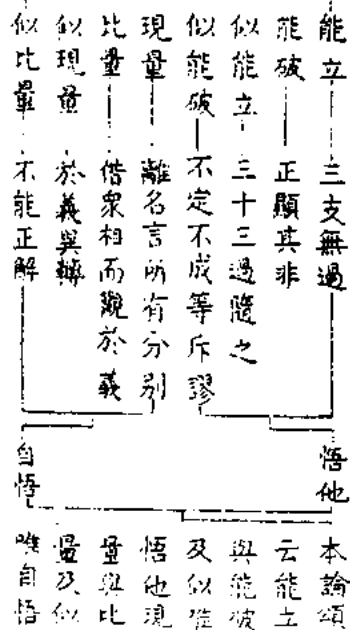 能立 三支無過
能破 正顯其非
似能立 三十三過隨之
似能破 不定不成等斥謬
現量 離名言所有分別
比量 借眾相而觀於義
似現量 於義異轉
似比量 不能正解
悟他
自悟
本論頌
云能立
與能破
及似唯
悟他現
量與比
量及似
唯自悟